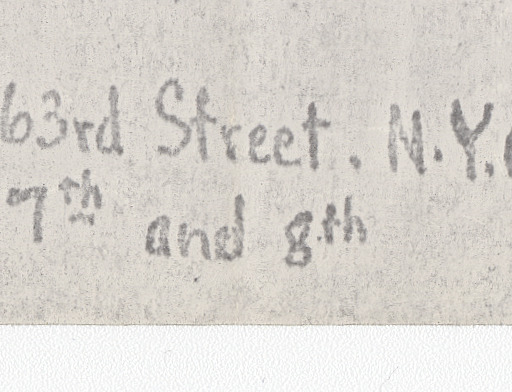 63rd Street. N.Y.C
7th and 8th